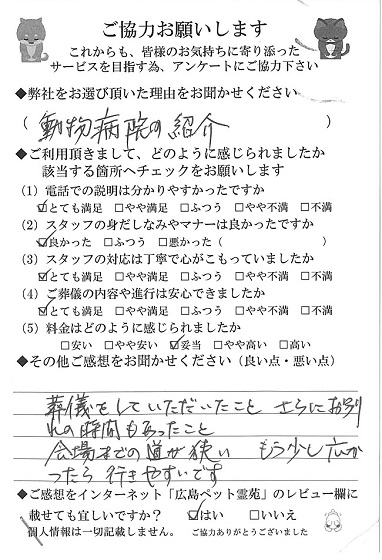 ご協力お願いします
これからも、皆様のお気持ちに寄り添った
サービスを目指す為、アンケートにご協力下さい
◆弊社をお選び頂いた理由をお聞かせください
( 動物病院の紹介 )
◆ご利用頂きまして、どのように感じられましたか
該当する箇所へチェックをお願いします
(1) 電話での説明は分かりやすかったですか
☑とても満足 □やや満足 □ふつう □やや不満 □不満
(2) スタッフの身だしなみやマナーは良かったですか
☑良かった □ふつう □悪かった ( )
(3) スタッフの対応は丁寧で心がこもっていましたか
☑とても満足 □やや満足 □ふつう □やや不満 □不満
(4) ご葬儀の内容や進行は安心できましたか
☑とても満足 □やや満足 □ふつう □やや不満 □不満
(5) 料金はどのように感じられましたか
□安い □やや安い ☑妥当 □やや高い □高い
◆その他ご感想をお聞かせください (良い点・悪い点)
葬儀をしていただいたこと さらにお別
れの時間もあったこと
会場までの道が狭い もう少し広か
ったら 行きやすいです
◆ご感想をインターネット「広島ペット霊苑」のレビュー欄に
載せても宜しいですか? ☑はい □いいえ
個人情報は一切記載しません。 ご協力ありがとうございました